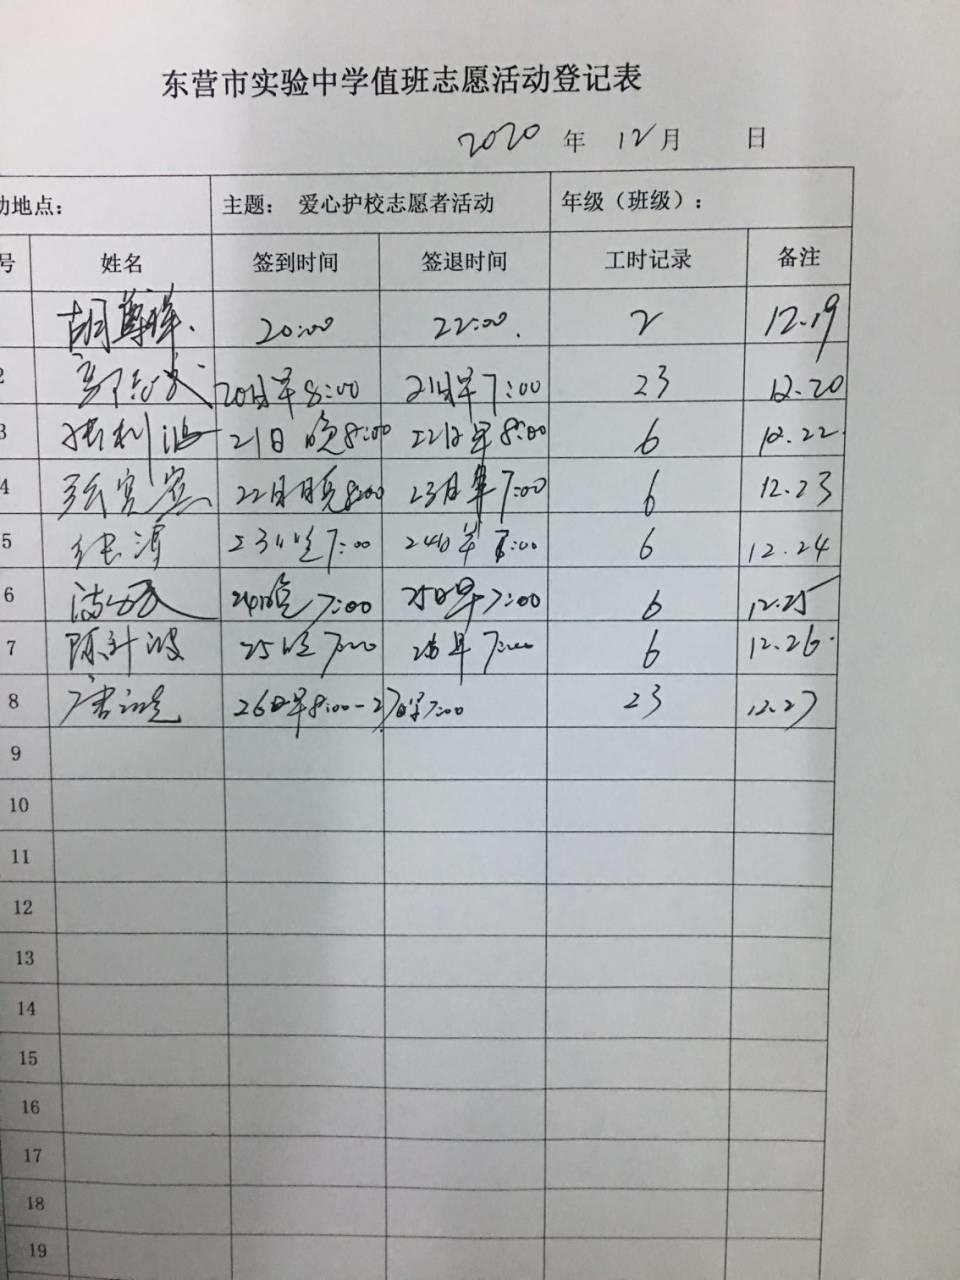 东营市实验中学值班志愿活动登记表
2020 年 12月 日
动地点： 主题： 爱心护校志愿者活动 年级（班级）：
号 姓名 签到时间 签退时间 工时记录 备注
胡尊祥 20:00 22:00 2 12.19
2 20日早8:00 21日早7:00 23 12.20
3 张利波 21日晚8:00 22日早8:00 6 12.22
4 22日晚8:00 23日早7:00 6 12.23
5 23日晚7:00 24日早7:00 6 12.24
6 24日晚7:00 25日早7:00 6 12.25
7 陈升波 25晚7:00 26早7:00 6 12.26
8 26日早8:00-27日早7:00 23 12.27
9
10
11
12
13
14
15
16
17
18
19